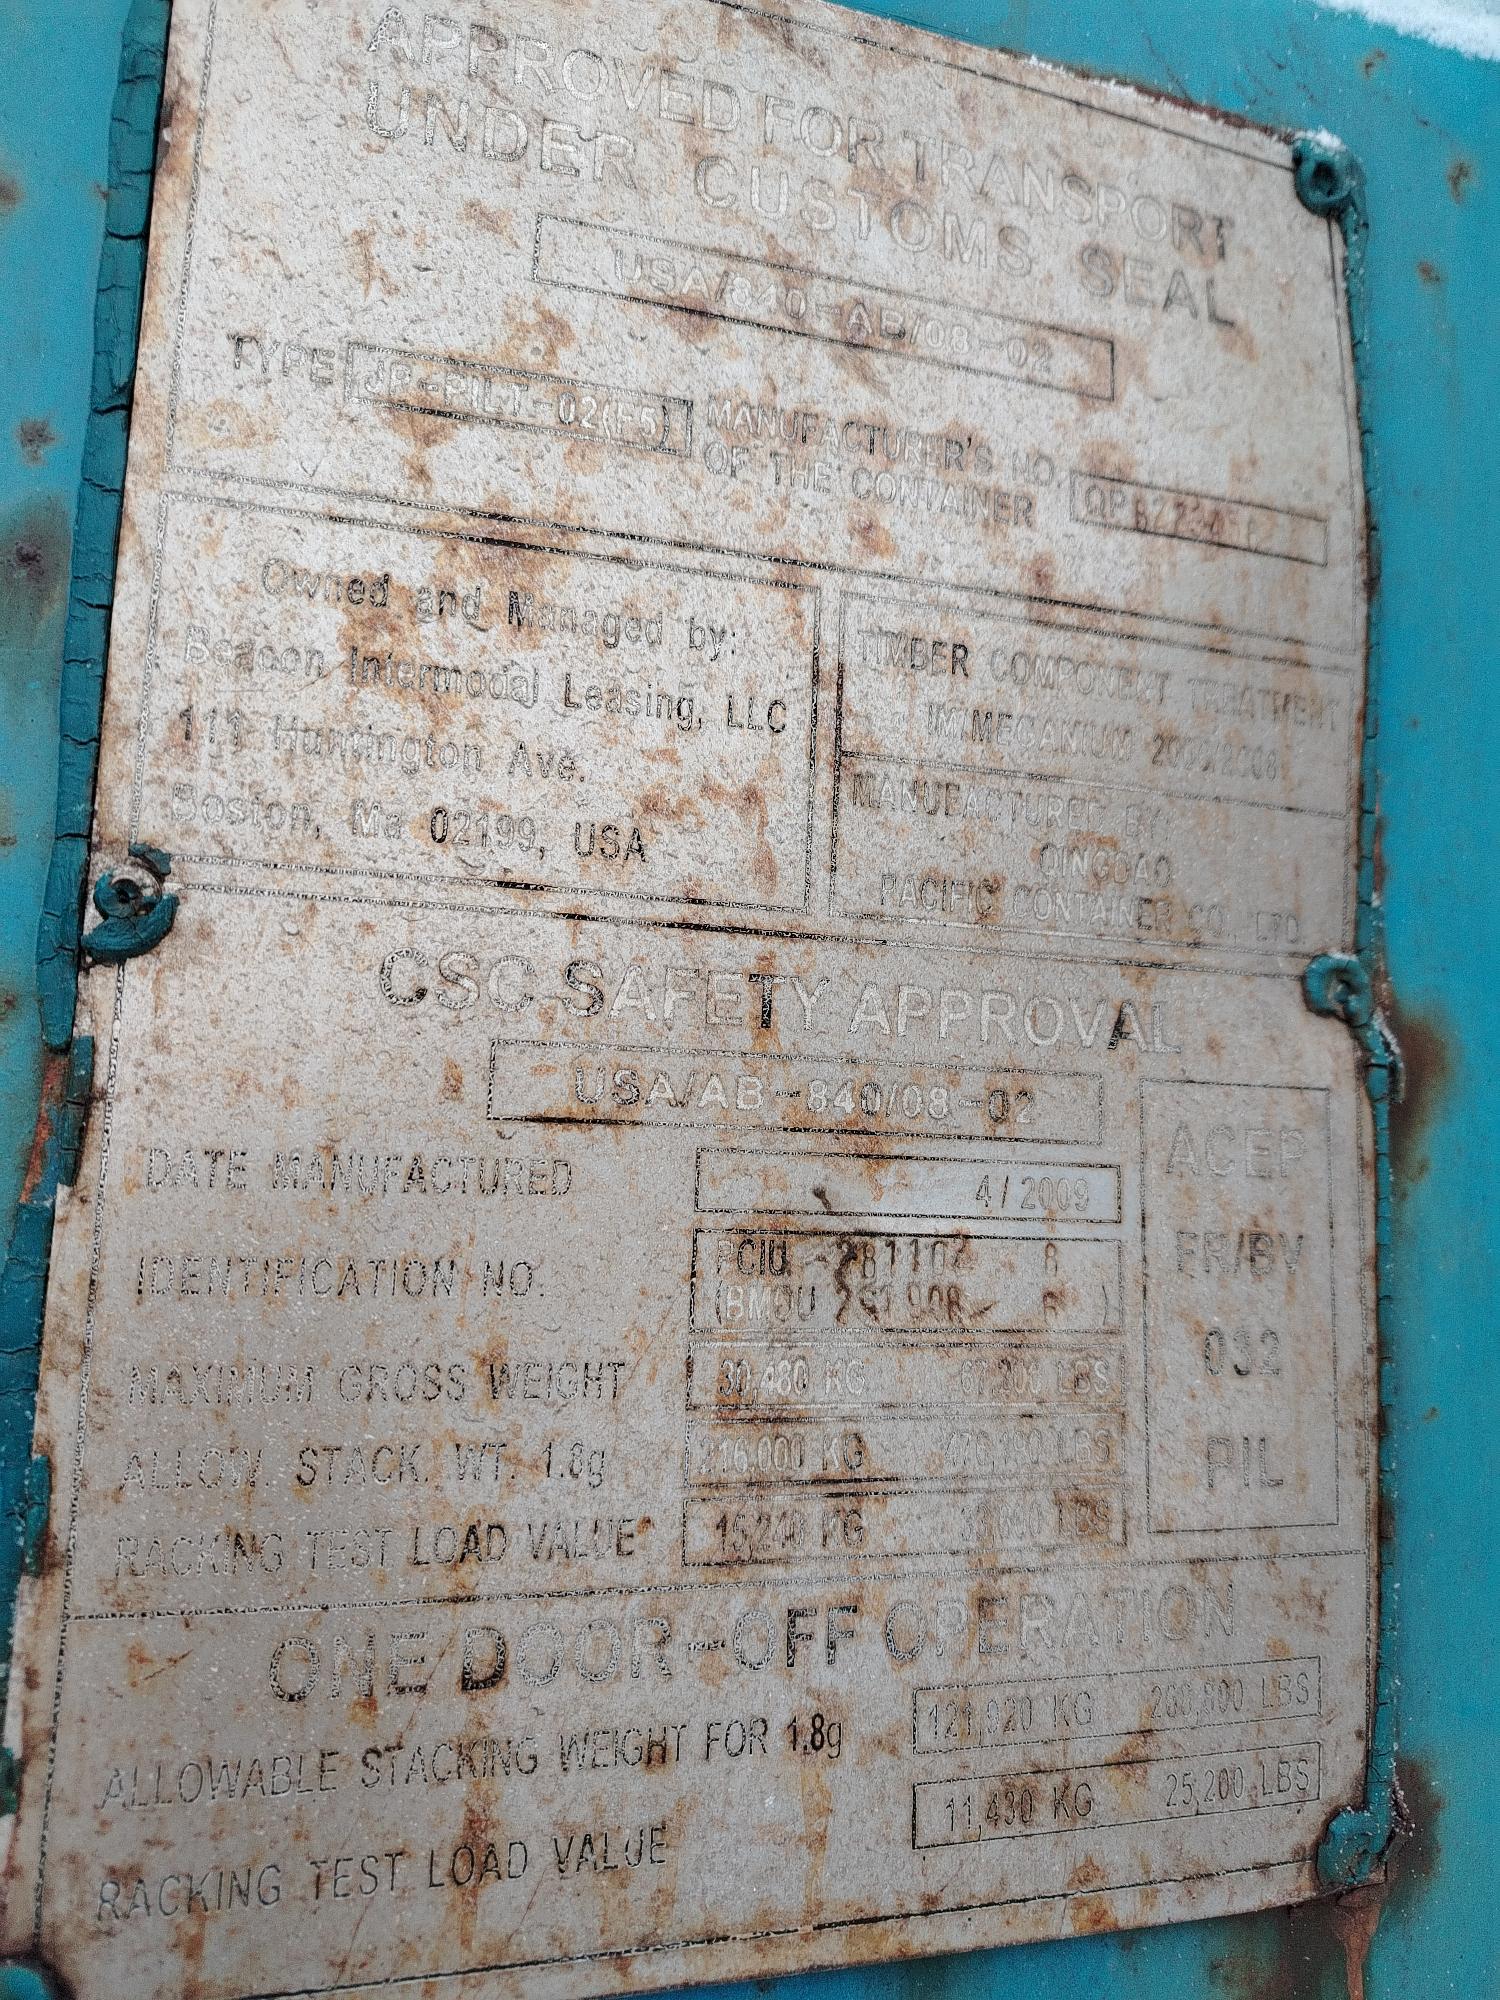 APPROVED FOR TRANSPORT
UNDER CUSTOMS SEAL
USA/840-AB/08-02
TYPE JP-PILT-02(F5) MANUFACTURER'S NO.
OF THE CONTAINER
Owned and Managed by:
Beacon Intermodal Leasing, LLC
111 Huntington Ave.
Boston, Ma 02199, USA
TIMBER COMPONENT TREATMENT
MANUFACTURED BY:
QINGDAO
PACIFIC CONTAINER CO., LTD.
CSC SAFETY APPROVAL
USA/AB-840/08-02
DATE MANUFACTURED 4/2009
IDENTIFICATION NO. PCIU 8
(BMOU 6 )
MAXIMUM GROSS WEIGHT 30,480 KG 67,200 LBS
ALLOW. STACK. WT. 1.8g 216,000 KG LBS
RACKING TEST LOAD VALUE 15,240 KG LBS
ACEP
FR/BV
032
PIL
ONE DOOR-OFF OPERATION
ALLOWABLE STACKING WEIGHT FOR 1.8g 121,920 KG 268,800 LBS
RACKING TEST LOAD VALUE 11,430 KG 25,200 LBS